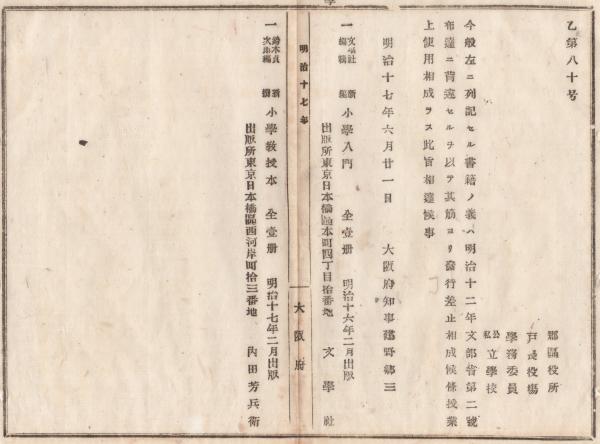 乙第八十号
郡區役所
戸長役場
學務委員
公私立學校
今般左ニ列記セル書籍ノ義ハ明治十二年文部省第二號
布達ニ背違セルヲ以テ其筋ヨリ發行差止相成候條授業
上使用相成ラス此旨相達候事
明治十七年六月廿一日 大阪府知事建野郷三
一 文學社編輯 新編 小學入門 全壹册 明治十六年二月出版
出版所東京日本橋區本町四丁目拾番地 文學社
明治十七年 大阪府
一 鈴木貞次郎編 新撰 小學教授本 全壹册 明治十七年二月出版
出版所東京日本橋區西河岸町拾三番地 内田芳兵衛